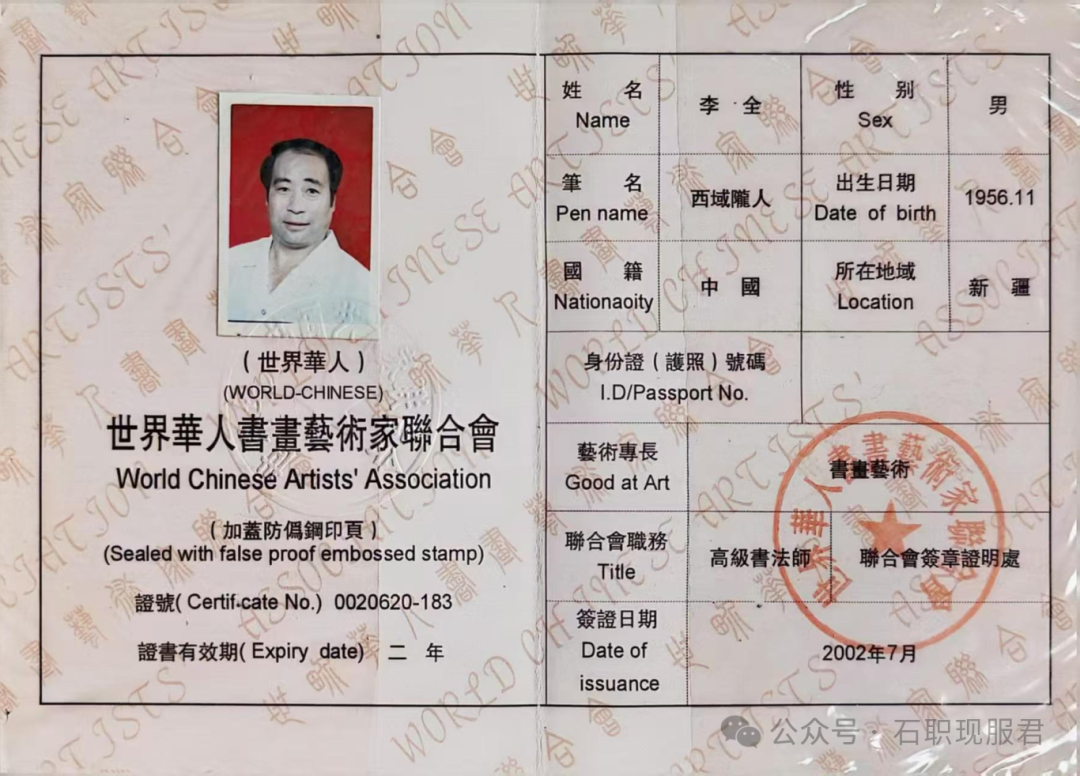 （世界華人）
(WORLD-CHINESE)
世界華人書畫藝術家聯合會
World Chinese Artists' Association
（加蓋防僞鋼印頁）
(Sealed with false proof embossed stamp)
證號( Certif.cate No.) 0020620-183
證書有效期( Expiry date) 二 年
姓 名 李·全 性 别 男
Name Sex
筆 名 西域隴人 出生日期 1956.11
Pen name Date of birth
國 籍 中 國 所在地域 新 疆
Nationaoity Location
身份證（護照）號碼
I.D/Passport No.
藝術專長 書畫藝術
Good at Art
聯合會職務 高級書法師 聯合會簽章證明處
Title
簽證日期
Date of 2002年7月
issuance
世界華人書畫藝術家聯合會
WORLD CHINESE ARTISTS' ASSOCIATION
公众号·石职现服君